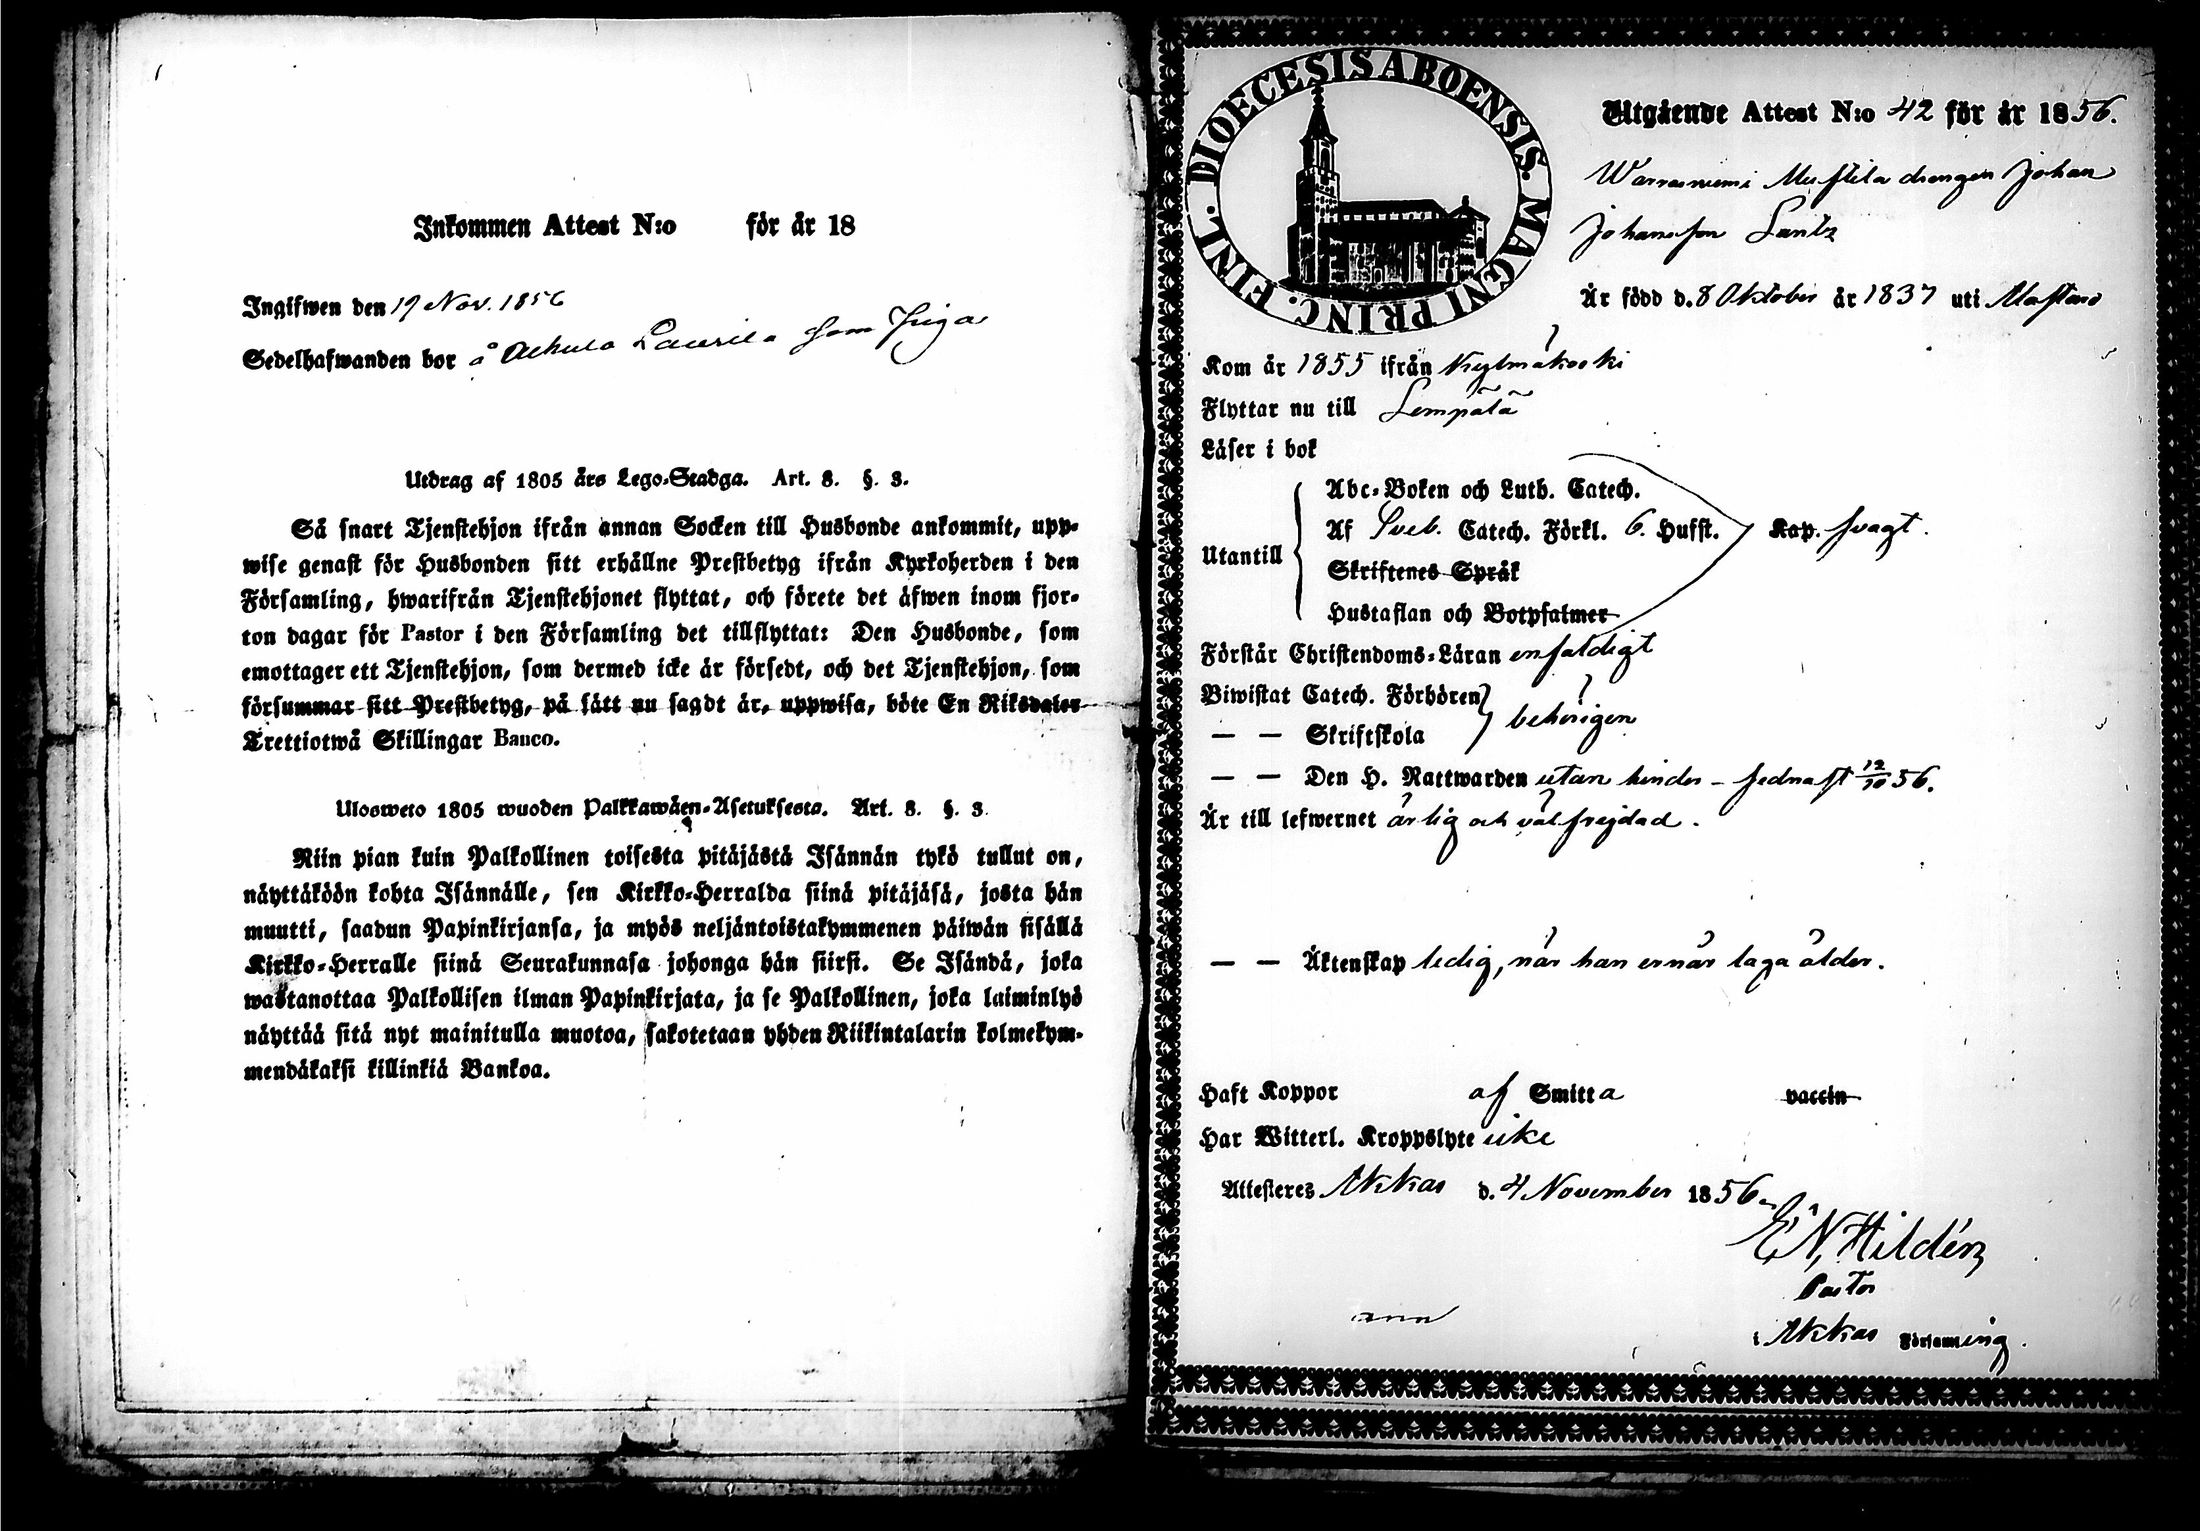 Inkommen Attest N:o för år 18
Ingifwen den 19 Nov. 1856
Sedelhafwanden bor å Achula Laurila som Piga
Utdrag af 1805 års Lego-Stadga. Art. 8. §. 3.
Så snart Tjenstehjon ifrån annan Socken till Husbonde ankommit, upp-
wise genast för Husbonden sitt erhållne Prestbetyg ifrån Kyrkoherden i den
Församling, hwarifrån Tjenstehjonet flyttat, och förete det äfwen inom fjor-
ton dagar för Pastor i den Församling det tillflyttat: Den Husbonde, som
emottager ett Tjenstehjon, som dermed icke är försedt, och det Tjenstehjon, som
försummar sitt Prestbetyg, på sätt nu sagdt är, uppwisa, böte En Riksdaler
Trettiotwå Skillingar Banco.
Ulosweto 1805 wuoden Palkkawäen-Asetuksesta. Art. 8. §. 3.
Niin pian kuin Palkollinen toisesta pitäjästä Isännän tykö tullut on,
näyttäköön kohta Isännälle, sen Kirkko-Herralda siinä pitäjäsä, josta hän
muutti, saadun Papinkirjansa, ja myös neljäntoistakymmenen päiwän sisällä
Kirkko-Herralle siinä Seurakunnasa johonga hän siirsi. Se Isändä, joka
wastanottaa Palkollisen ilman Papinkirjata, ja se Palkollinen, joka laiminlyö
näyttää sitä nyt mainitulla muotoa, sakotetaan yhden Riikintalarin kolmekym-
mendäkaksi killinkiä Bankoa.
DIOECESIS ABOENSIS. MAGNI PRINC. FINL.
Utgående Attest N:o 42 för år 1856.
Warraniemi Mustila drengen Johan
Johansson Lantz
Är född d. 8 Oktober år 1837 uti
Kom år 1855 ifrån Kylmäkoski
Flyttar nu till Lempälä
Läser i bok
Abc-Boken och Luth. Catech.
Af Sveb. Catech. Förkl. 6. Hufst. Kap. svagt.
Utantill
Skriftenes Språk
Hustaflan och Botpsalmer
Förstår Christendoms-Läran enfaldigt
Biwistat Catech. Förhören
— — Skriftskola behörigen
— — Den H. Nattwarden utan hinder – sednast 12/10 56.
Är till lefwernet ärlig och välfrejdad.
— — Äktenskap ledig, när han ernår laga ålder.
Haft Koppor af Smitta vaccin
Har Witterl. Kroppslyte icke
Attesteres Akkas d. 4 November 1856
E N Hildén
Pastor
i Akkas Församling.